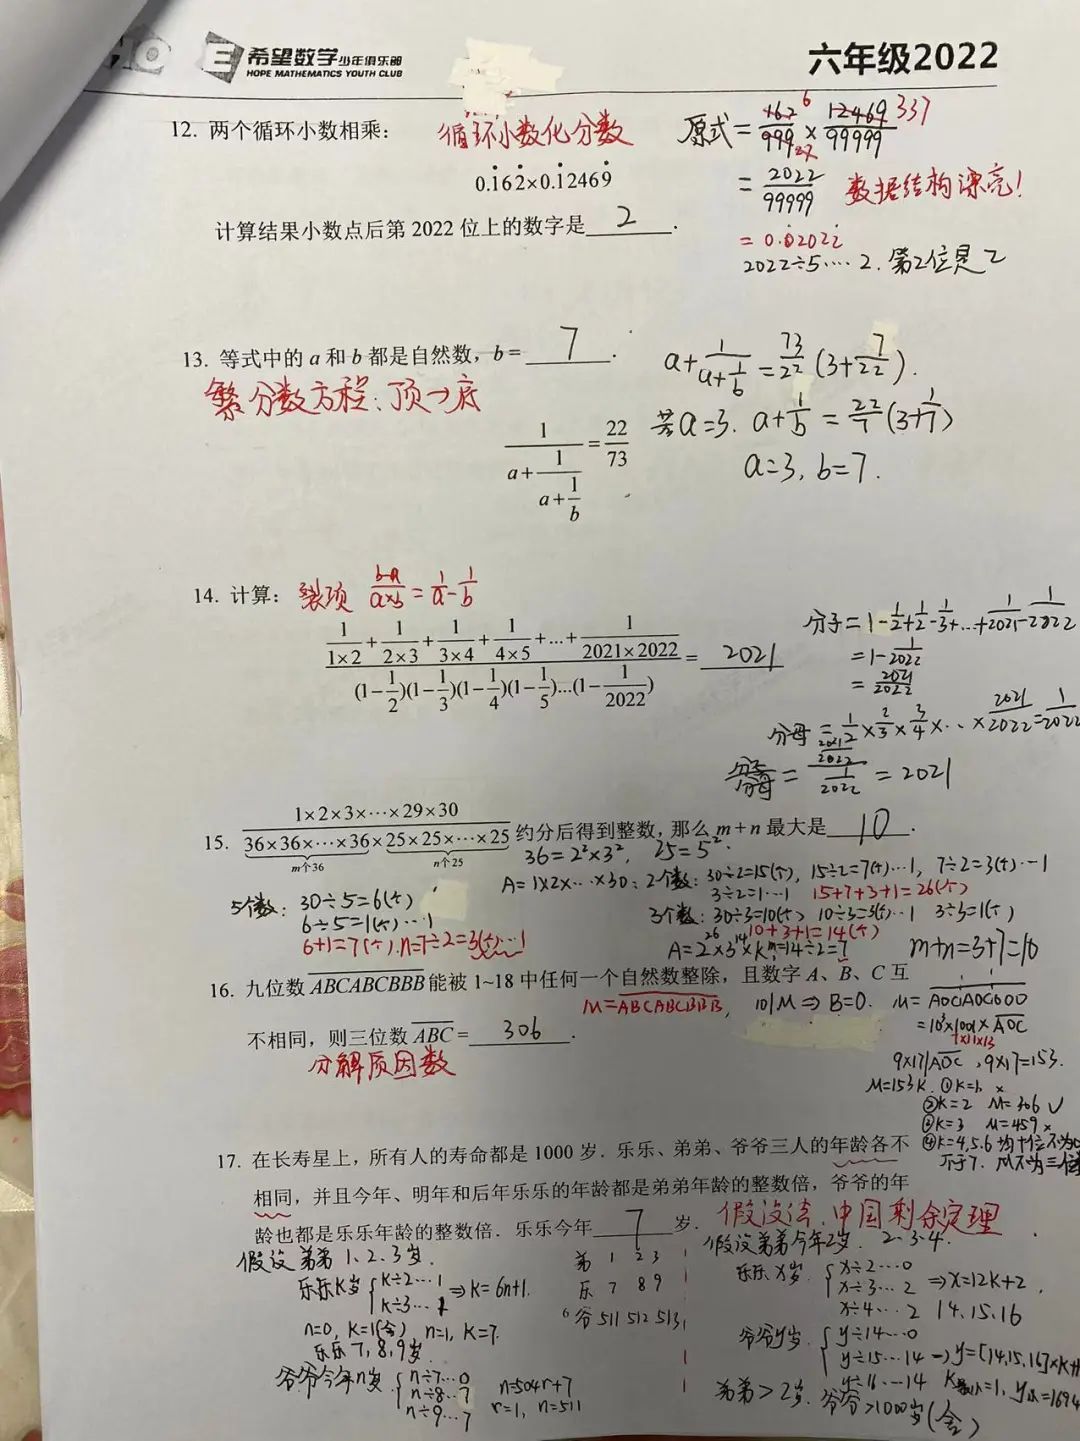 希望数学少年俱乐部
HOPE MATHEMATICS YOUTH CLUB
六年级2022
12. 两个循环小数相乘:
循环小数化分数
0.1̇62̇×0.1̇2469̇
计算结果小数点后第 2022 位上的数字是 2 .
原式 = 162/999 × 12469/99999
6 337
27
= 2022/99999 数据结构漂亮!
= 0.0̇2022̇
2022÷5…2. 第2位是2
13. 等式中的 a 和 b 都是自然数, b = 7 .
繁分数方程: 顶→底
1/(a+1/(a+1/b)) = 22/73
a+1/(a+1/b) = 73/22 (3+7/22).
若a=3. a+1/b = 22/7 (3+1/7)
a=3, b=7.
14. 计算:
裂项 (b-a)/(a×b) = 1/a - 1/b
(1/(1×2) + 1/(2×3) + 1/(3×4) + 1/(4×5) + … + 1/(2021×2022)) / ((1-1/2)(1-1/3)(1-1/4)(1-1/5)…(1-1/2022)) = 2021
分子 = 1-1/2+1/2-1/3+…+1/2021-1/2022
= 1-1/2022
= 2021/2022
分母 = 1/2×2/3×3/4×…×2021/2022=1/2022
分子/分母 = (2021/2022)/(1/2022) = 2021
15. (1×2×3×⋯×29×30)/(36×36×⋯×36×25×25×⋯×25) 约分后得到整数, 那么 m+n 最大是 10 .
m个36 n个25
36=2²×3², 25=5².
A=1×2×…×30: 2个数: 30÷2=15(个), 15÷2=7(个)…1, 7÷2=3(个)…1
3÷2=1…1 15+7+3+1=26(个)
5个数: 30÷5=6(个)
6÷5=1(个)…1
6+1=7(个). n=7÷2=3(个)…1
3个数: 30÷3=10(个) 10÷3=3(个)…1 3÷3=1(个)
10+3+1=14(个)
A=2²⁶×3¹⁴×K m=14÷2=7
m+n=3+7=10
16. 九位数 ABCABCBBB 能被 1~18 中任何一个自然数整除, 且数字 A、B、C 互
不相同, 则三位数 ABC = 306 .
分解质因数
M=ABCABCBBB, 10|M ⇒ B=0. M = A0CA0C000
=10³×1001×A0C
7×11×13
9×17|A0C, 9×17=153.
M=153K. ①K=1 ×
②K=2 M=306 ✓
③K=3 M=459 ×
④K=4,5,6 均十位不为0
17. 在长寿星上, 所有人的寿命都是 1000 岁. 乐乐、弟弟、爷爷三人的年龄各不
相同, 并且今年、明年和后年乐乐的年龄都是弟弟年龄的整数倍, 爷爷的年
龄也都是乐乐年龄的整数倍. 乐乐今年 7 岁.
假设法. 中国剩余定理
假设弟弟 1、2、3岁.
乐乐K岁 { K÷2…1 K÷3…1 ⇒ K=6n+1.
n=0, K=1(舍) n=1, K=7.
乐乐 7, 8, 9岁.
爷爷今年n岁. { n÷7…0 n÷8…7 n÷9…7
n=504r+7
r=1, n=511
弟 1 2 3
乐 7 8 9
爷 511 512 513
假设弟弟今年2岁. 2.3.4.
乐乐X岁. { x÷2…0 x÷3…2 x÷4…2 ⇒ x=12K+2.
14.15.16
爷爷y岁. { y÷14…0 y÷15…14 y÷16…14 → y=[14,15,16]×K+14
K最小=1, y=1694
弟弟>2岁. 爷爷>1000岁(舍)